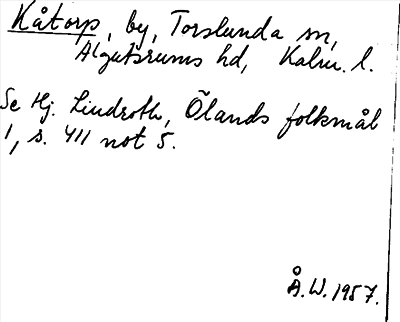 Kåtorp, by, Torslunda sn,
Algutsrums hd, Kalm. l.
Se Hj. Lindroth, Ölands folkmål
1, s. 411 not 5.
Å.W. 1957.